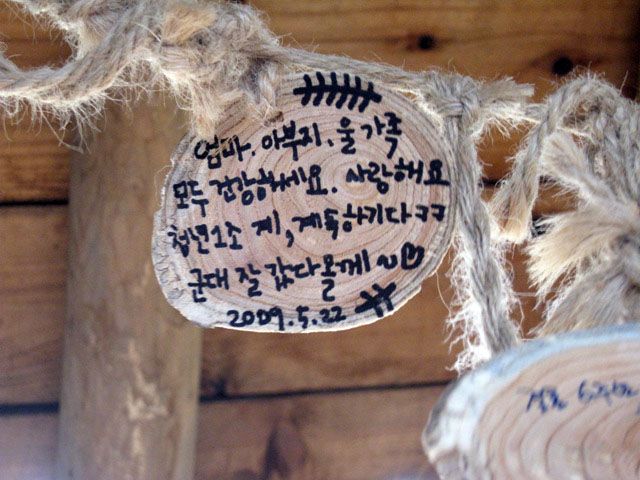 엄마, 아부지, 울 가족
모두 건강하세요. 사랑해요
청년1조 계, 계속하기다ㅋㅋ
군대 잘 갔다 올께~♡
2009.5.22